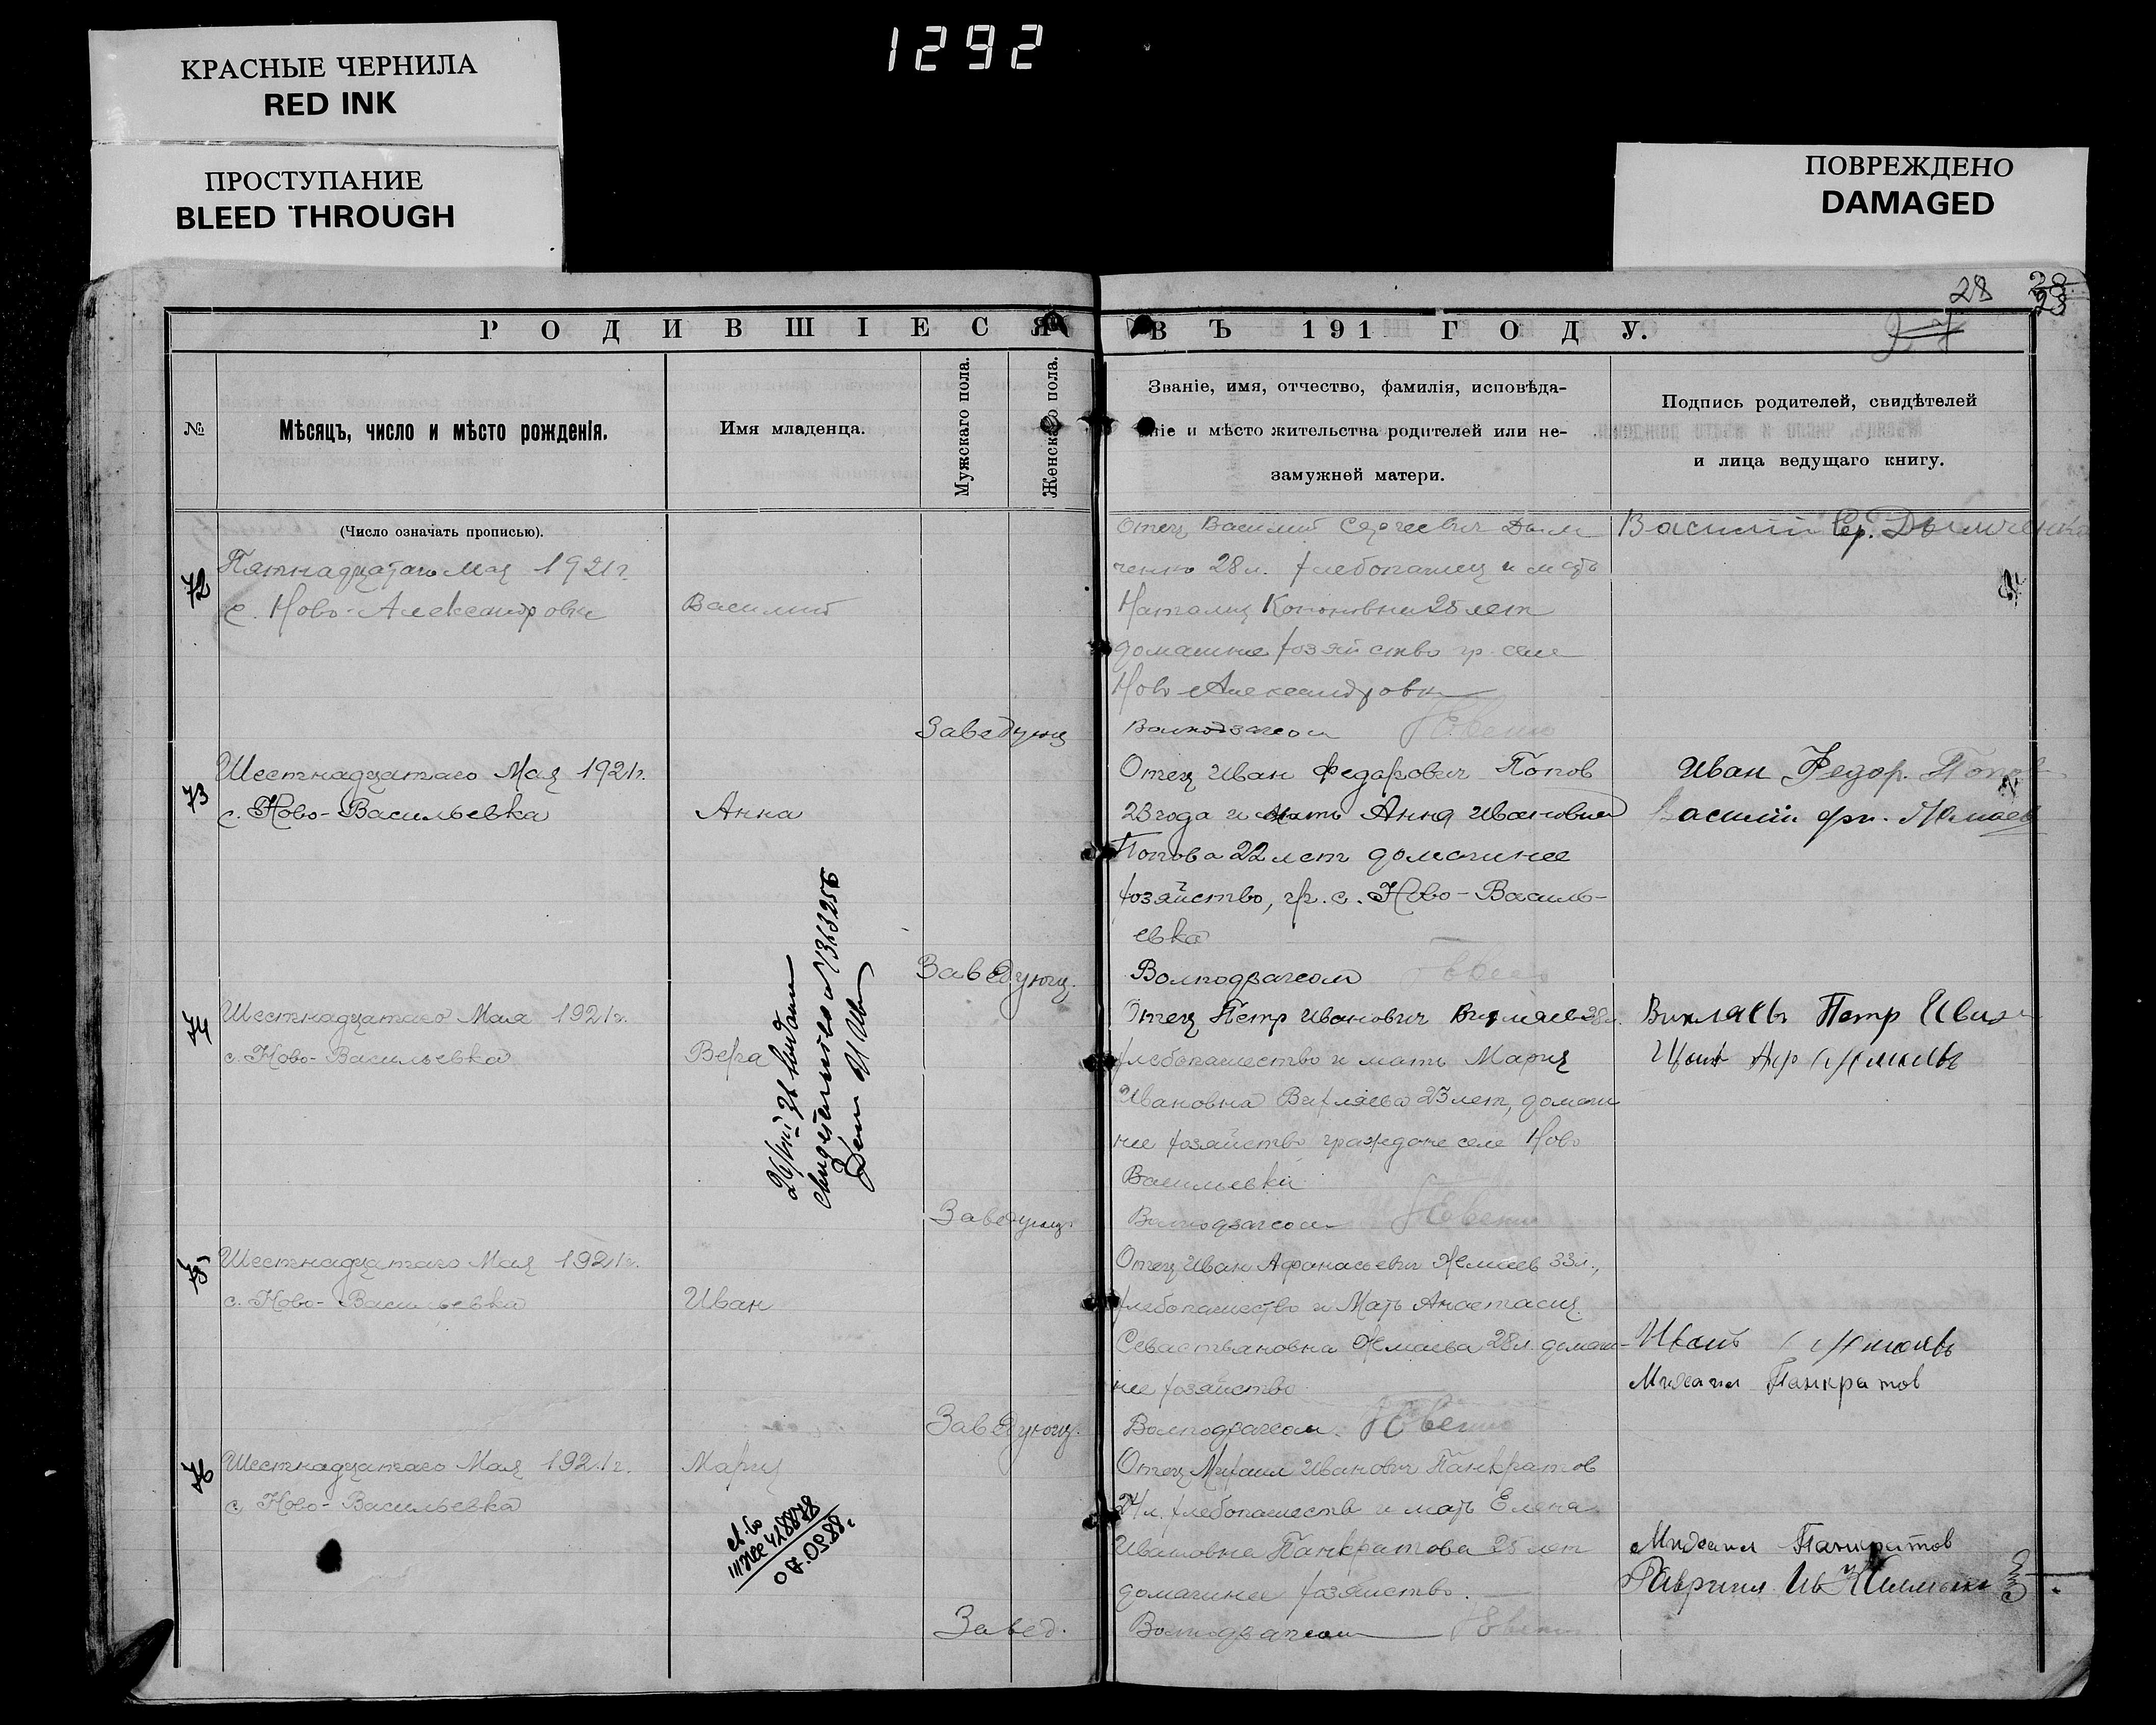 1292
КРАСНЫЕ ЧЕРНИЛА
RED INK
ПРОСТУПАНИЕ
BLEED THROUGH
ПОВРЕЖДЕНО
DAMAGED
28 28
РОДИВШІЕСЯ ВЪ 191 ГОДУ.
№
Мѣсяцъ, число и мѣсто рожденія.
Имя младенца.
Мужскаго пола.
Женскаго пола.
Званіе, имя, отчество, фамилія, исповѣда-
ніе и мѣсто жительства родителей или не-
замужней матери.
Подпись родителей, свидѣтелей
и лица ведущаго книгу.
(Число означать прописью).
72
Пятнадцатаго Мая 1921г.
с. Ново-Александровки
Василий
Отец Василий Сергеевич Дым
ченко 28 л. хлебопашец и мать
Наталия Кононовна 25 лет
домашнее хозяйство гр. села
Ново Александровки
Заведующ
Волподзагсом
Василий Сер. Дымченко
73
Шестнадцатаго Мая 1921г.
с. Ново-Васильевка
Анна
Отец Иван Федорович Попов
23 года и мать Анна Ивановна
Попова 22 лет домашнее
хозяйство, гр. с. Ново-Василь-
евка
Заведующ.
Волподзагсом
Иван Федор. Попов
Василий
74
Шестнадцатаго Мая 1921г.
с. Ново-Васильевка
Вера
Отец Петр Иванович Вихляев 28л.
хлебопашество и мать Мария
Ивановна Вихляева 23 лет, домаш
нее хозяйство граждане села Ново
Васильевки
Заведующ.
Волподзагсом
Вихляевъ Петр Иван
75
Шестнадцатаго Мая 1921г.
с. Ново-Васильевка
Иван
Отец Иван Афанасьевич Жмаев 33л.,
хлебопашество и Мать Анастасия
Севастьяновна Жмаева 28л. домаш-
нее хозяйство
Заведующ.
Волподзагсом
Иванъ Жмаевъ
Михаил Панкратов
76
Шестнадцатаго Мая 1921г.
с. Ново-Васильевка
Мария
Отец Михаил Иванович Панкратов
24л. хлебопашеств и мать Елена
Ивановна Панкратова 25 лет
домашнее хозяйство.
Завед.
Волподзагсом
Михаил Панкратов
Гаврил Ив